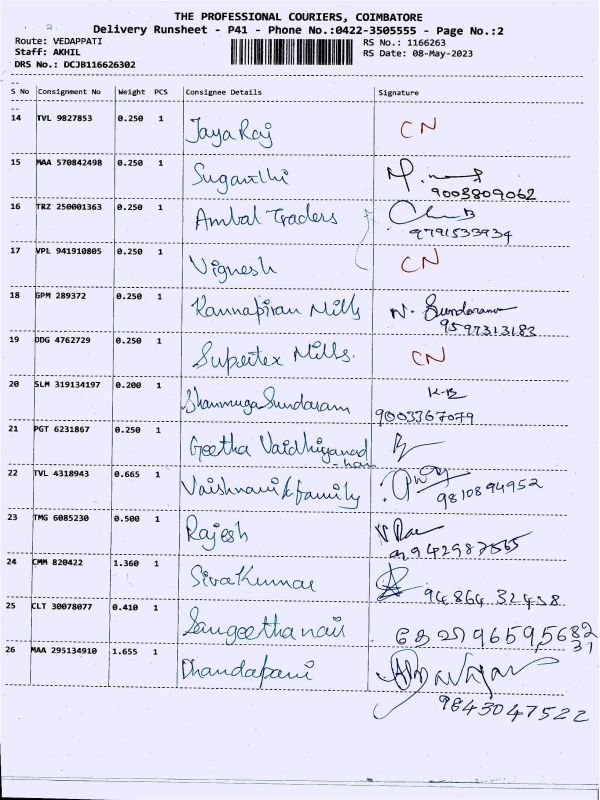 THE PROFESSIONAL COURIERS, COIMBATORE
Delivery Runsheet - P41 - Phone No.:0422-3505555 - Page No.:2
Route: VEDAPPATI RS No.: 1166263
Staff: AKHIL RS Date: 08-May-2023
DRS No.: DCJB116626302
S No Consignment No Weight PCS Consignee Details Signature
14 TVL 9827853 0.250 1 Jaya Raj CN
15 MAA 570842498 0.250 1 Suganthi
9003809062
16 TRZ 250001363 0.250 1 Ambal Traders
9791533934
17 VPL 941910805 0.250 1 Vignesh CN
18 GPM 289372 0.250 1 Kannapiran Mills N. Sundaram
9597313183
19 DDG 4762729 0.250 1 Supertex Mills. CN
20 SLM 319134197 0.200 1 Shanmuga Sundaram K-B
9003367079
21 PGT 6231867 0.250 1 Geetha Vaidhiyanad
-han
22 TVL 4318943 0.665 1 Vaishnavi & family
9810894952
23 TMG 6085230 0.500 1 Rajesh
24 CMM 820422 1.360 1 Sivakumar
94864 32438
25 CLT 30078077 0.410 1 Sangeetha nair 96595682
31
26 MAA 295134910 1.655 1 Dhandapani
9843047522